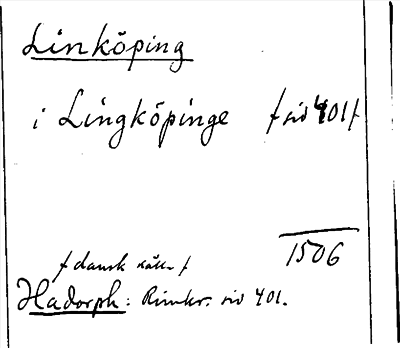 Linköping
i Lingköpinge /sid 401/
1506
/dansk käll. /
Hadorph: Rimkr. sid 401.